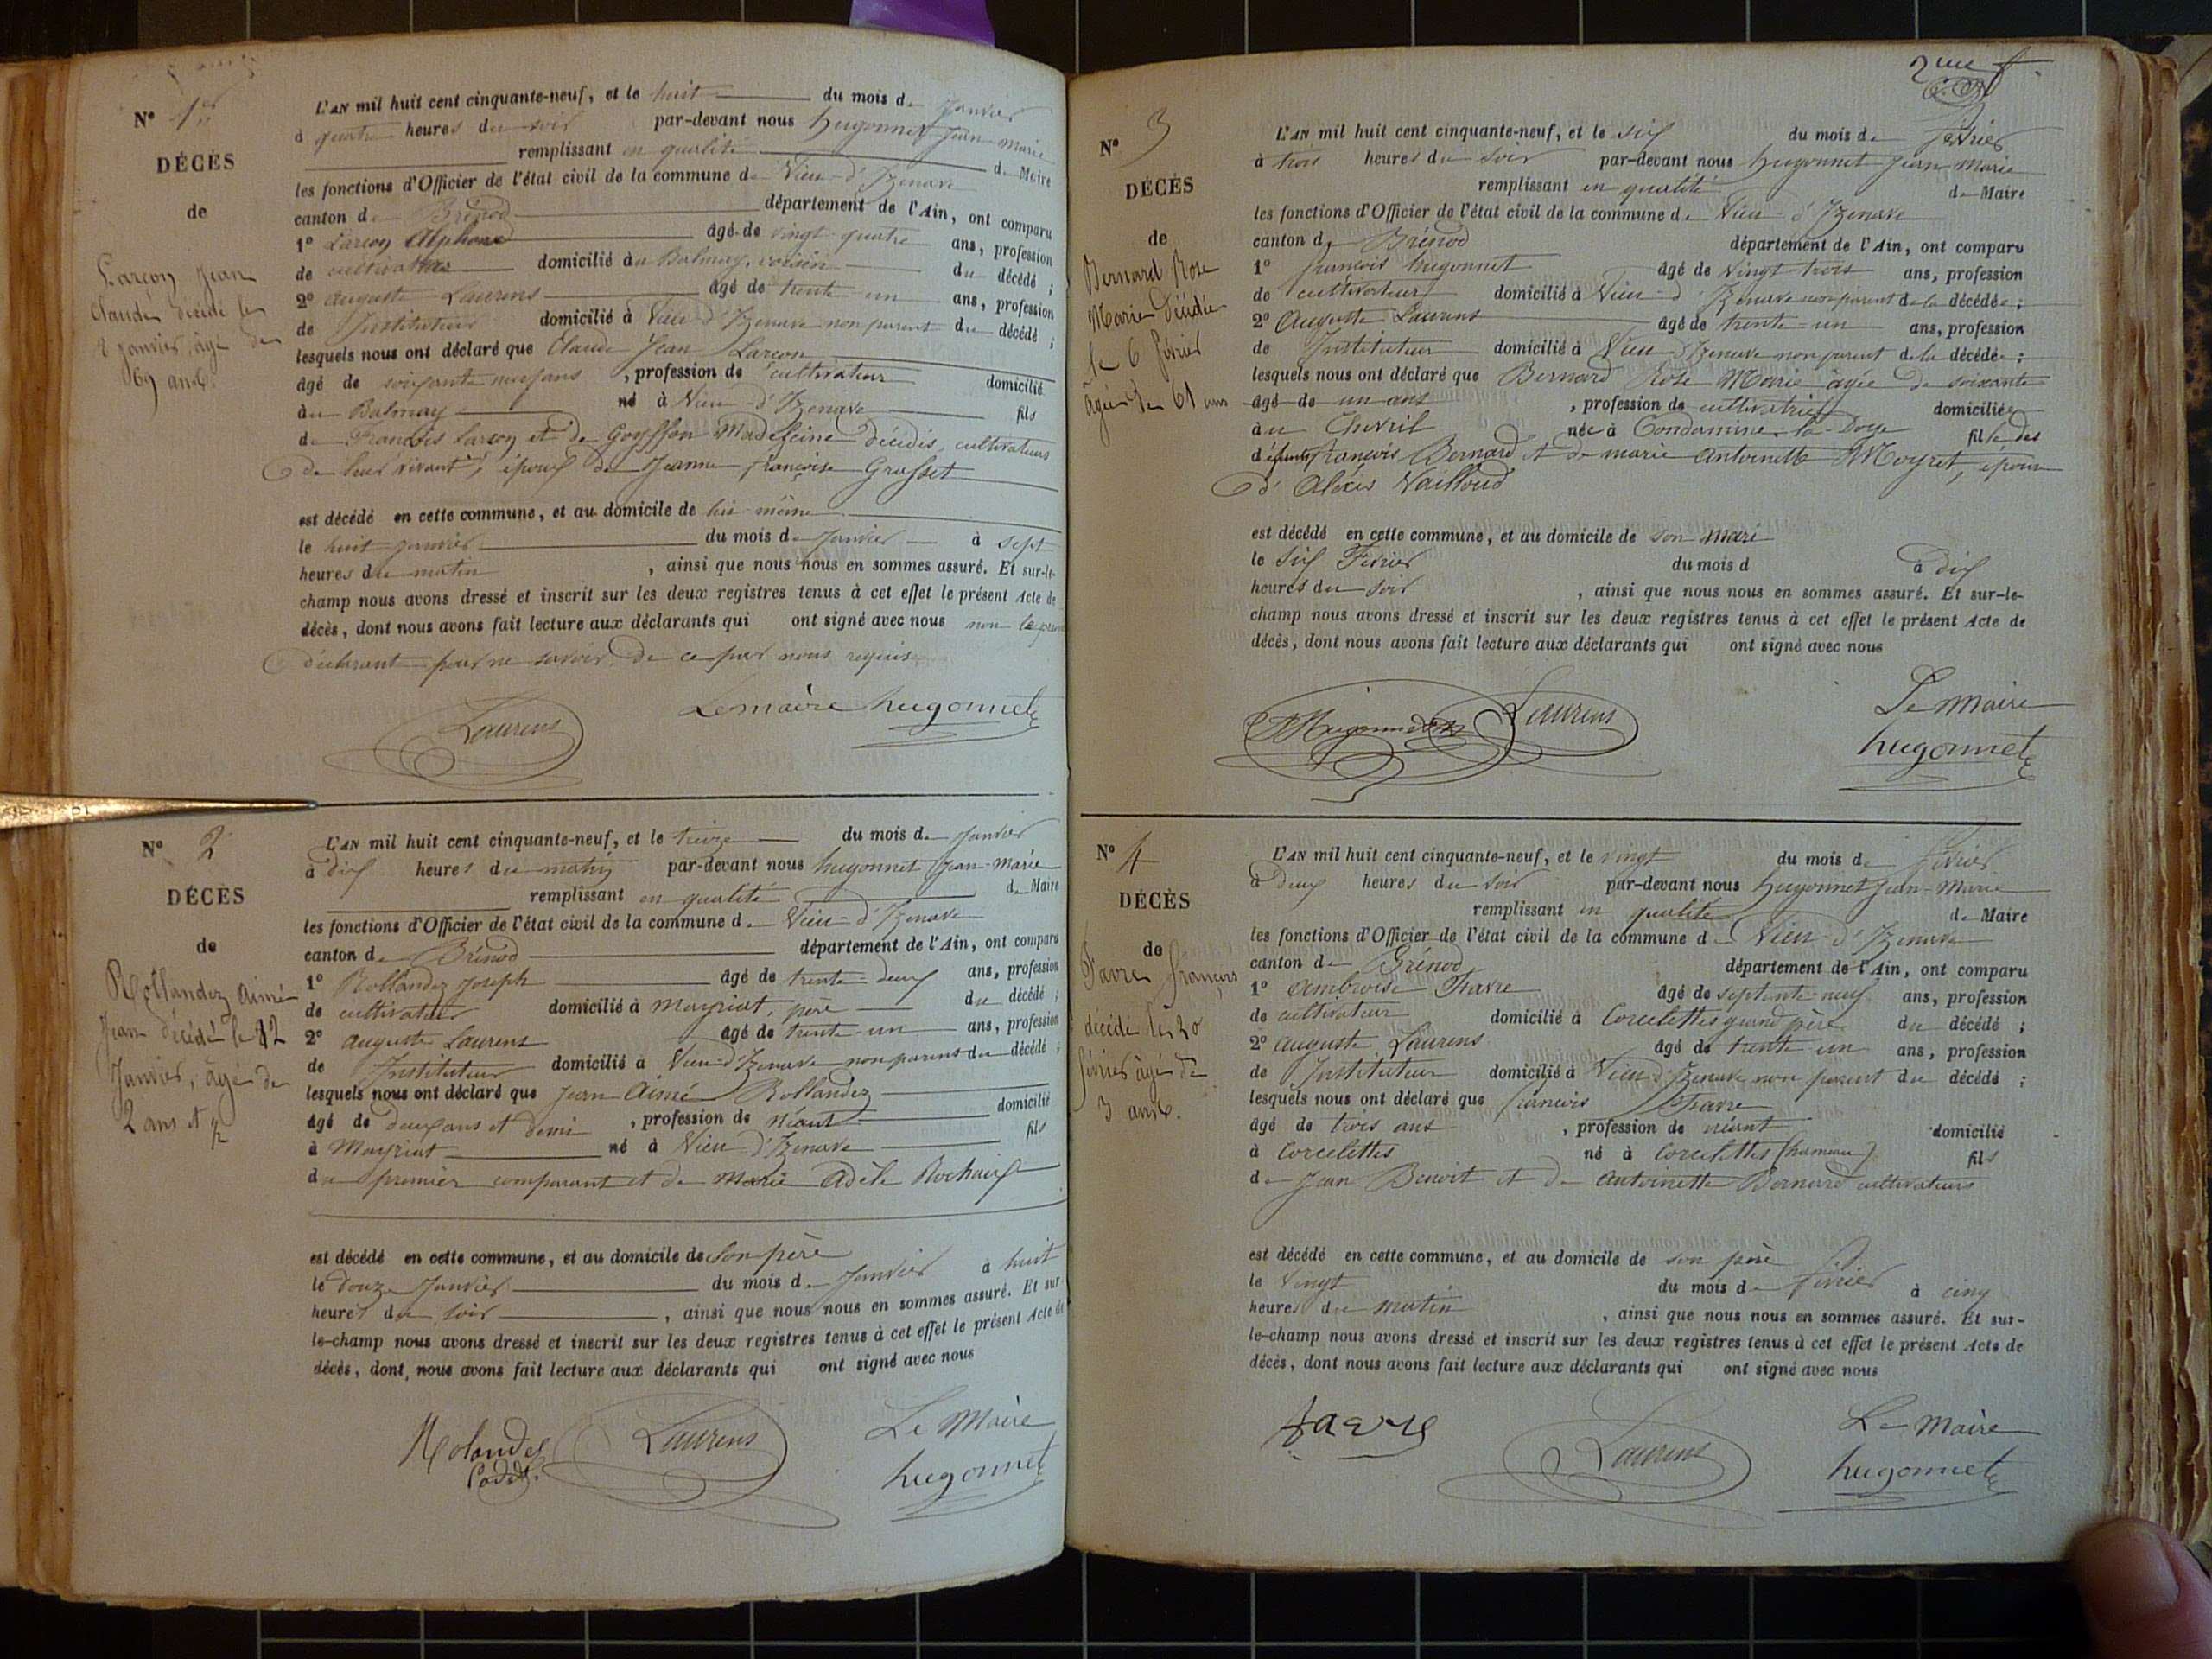 N° 1er
DÉCÈS
de
Larçon Jean
Claude décédé le
8 janvier, âgé de
69 ans.
L'AN mil huit cent cinquante-neuf, et le huit du mois de Janvier
à quatre heures du soir par-devant nous hugonnet Jean Marie
remplissant en qualité de Maire
les fonctions d'Officier de l'état civil de la commune de Vieu-d'Izenave
canton de Brénod département de l'Ain, ont comparu
1° Larçon Alphonse âgé de vingt quatre ans, profession
de cultivateur domicilié au Balmay, voisin du décédé ;
2° auguste Laurens âgé de trente-un ans, profession
de Instituteur domicilié à Vieu-d'Izenave non parent du décédé ;
lesquels nous ont déclaré que Claude Jean Larçon
âgé de soixante neuf ans , profession de cultivateur domicilié
au Balmay né à Vieu-d'Izenave fils
de François Larçon et de Goyffon Madeleine décédés, cultivateurs
de leur vivant, époux de Jeanne françoise Grasset
est décédé en cette commune, et au domicile de lui-même
le huit janvier du mois de Janvier à sept
heures du matin , ainsi que nous nous en sommes assuré. Et sur-le-
champ nous avons dressé et inscrit sur les deux registres tenus à cet effet le présent Acte de
décès, dont nous avons fait lecture aux déclarants qui ont signé avec nous non le
déclarant pour ne savoir, de ce par nous requis
Laurens
Le maire hugonnet
N° 2
DÉCÈS
de
Rollandez Aimé
Jean décédé le 12
Janvier, âgé de
2 ans et ½
L'AN mil huit cent cinquante-neuf, et le treize du mois de Janvier
à dix heures du matin par-devant nous hugonnet Jean-Marie
remplissant en qualité de Maire
les fonctions d'Officier de l'état civil de la commune de Vieu-d'Izenave
canton de Brénod département de l'Ain, ont comparu
1° Rollandez Joseph âgé de trente-deux ans, profession
de cultivateur domicilié à Mayriat, père du décédé ;
2° auguste Laurens âgé de trente-un ans, profession
de Instituteur domicilié à Vieu-d'Izenave non parent du décédé ;
lesquels nous ont déclaré que Jean Aimé Rollandez
âgé de deux ans et demi , profession de Néant domicilié
à Mayriat né à Vieu-d'Izenave fils
du premier comparant et de Marie Adèle Rochaix
est décédé en cette commune, et au domicile de Son père
le Douze Janvier du mois de Janvier à huit
heures du soir , ainsi que nous nous en sommes assuré. Et sur-
le-champ nous avons dressé et inscrit sur les deux registres tenus à cet effet le présent Acte de
décès, dont nous avons fait lecture aux déclarants qui ont signé avec nous
Rolandez
Cadet.
Laurens
Le Maire
hugonnet
2me f
N° 3
DÉCÈS
de
Bernard Rose
Marie décédée
le 6 février
âgée de 61 ans
L'AN mil huit cent cinquante-neuf, et le six du mois de février
à trois heures du soir par-devant nous hugonnet Jean Marie
remplissant en qualité de Maire
les fonctions d'Officier de l'état civil de la commune de Vieu-d'Izenave
canton de Brénod département de l'Ain, ont comparu
1° françois hugonnet âgé de Vingt trois ans, profession
de cultivateur domicilié à Vieu-d'Izenave non parent de la décédée ;
2° Auguste Laurens âgé de trente-un ans, profession
de Instituteur domicilié à Vieu-d'Izenave non parent de la décédée ;
lesquels nous ont déclaré que Bernard Rose Marie âgée de soixante
âgé de un ans , profession de cultivatrice domiciliée
au Chevril née à Condamine-la-Doye fille des
défunts françois Bernard et de marie Antoinette Moyret, épouse
d'Aléxis Vailloud
est décédé en cette commune, et au domicile de son mari
le Six Février du mois d à dix
heures du soir , ainsi que nous nous en sommes assuré. Et sur-le-
champ nous avons dressé et inscrit sur les deux registres tenus à cet effet le présent Acte de
décès, dont nous avons fait lecture aux déclarants qui ont signé avec nous
Laurens
Le Maire
hugonnet
N° 4
DÉCÈS
de
Favre françois
décédé le 20
février âgé de
3 ans.
L'AN mil huit cent cinquante-neuf, et le vingt du mois de février
à Deux heures du soir par-devant nous hugonnet Jean-Marie
remplissant en qualité de Maire
les fonctions d'Officier de l'état civil de la commune de Vieu-d'Izenave
canton de Brénod département de l'Ain, ont comparu
1° Ambroise Favre âgé de septante neuf ans, profession
de cultivateur domicilié à Corcelettes grand père du décédé ;
2° auguste Laurens âgé de trente-un ans, profession
de Instituteur domicilié à Vieu-d'Izenave non parent du décédé ;
lesquels nous ont déclaré que françois Favre
âgé de trois ans , profession de néant domicilié
à Corcelettes né à Corcelettes (hameau) fils
de Jean Benoit et de Antoinette Bernard cultivateurs
est décédé en cette commune, et au domicile de son père
le Vingt du mois de février à cinq
heures du matin , ainsi que nous nous en sommes assuré. Et sur-
le-champ nous avons dressé et inscrit sur les deux registres tenus à cet effet le présent Acte de
décès, dont nous avons fait lecture aux déclarants qui ont signé avec nous
favre
Laurens
Le Maire
hugonnet